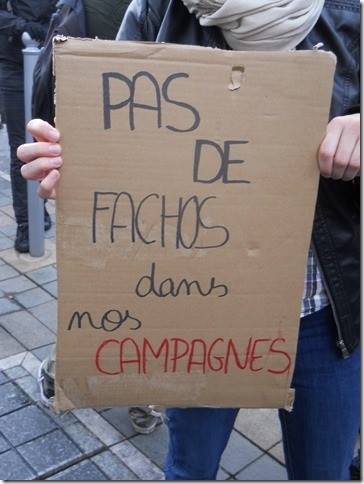 PAS
DE
FACHOS
dans
nos
CAMPAGNES